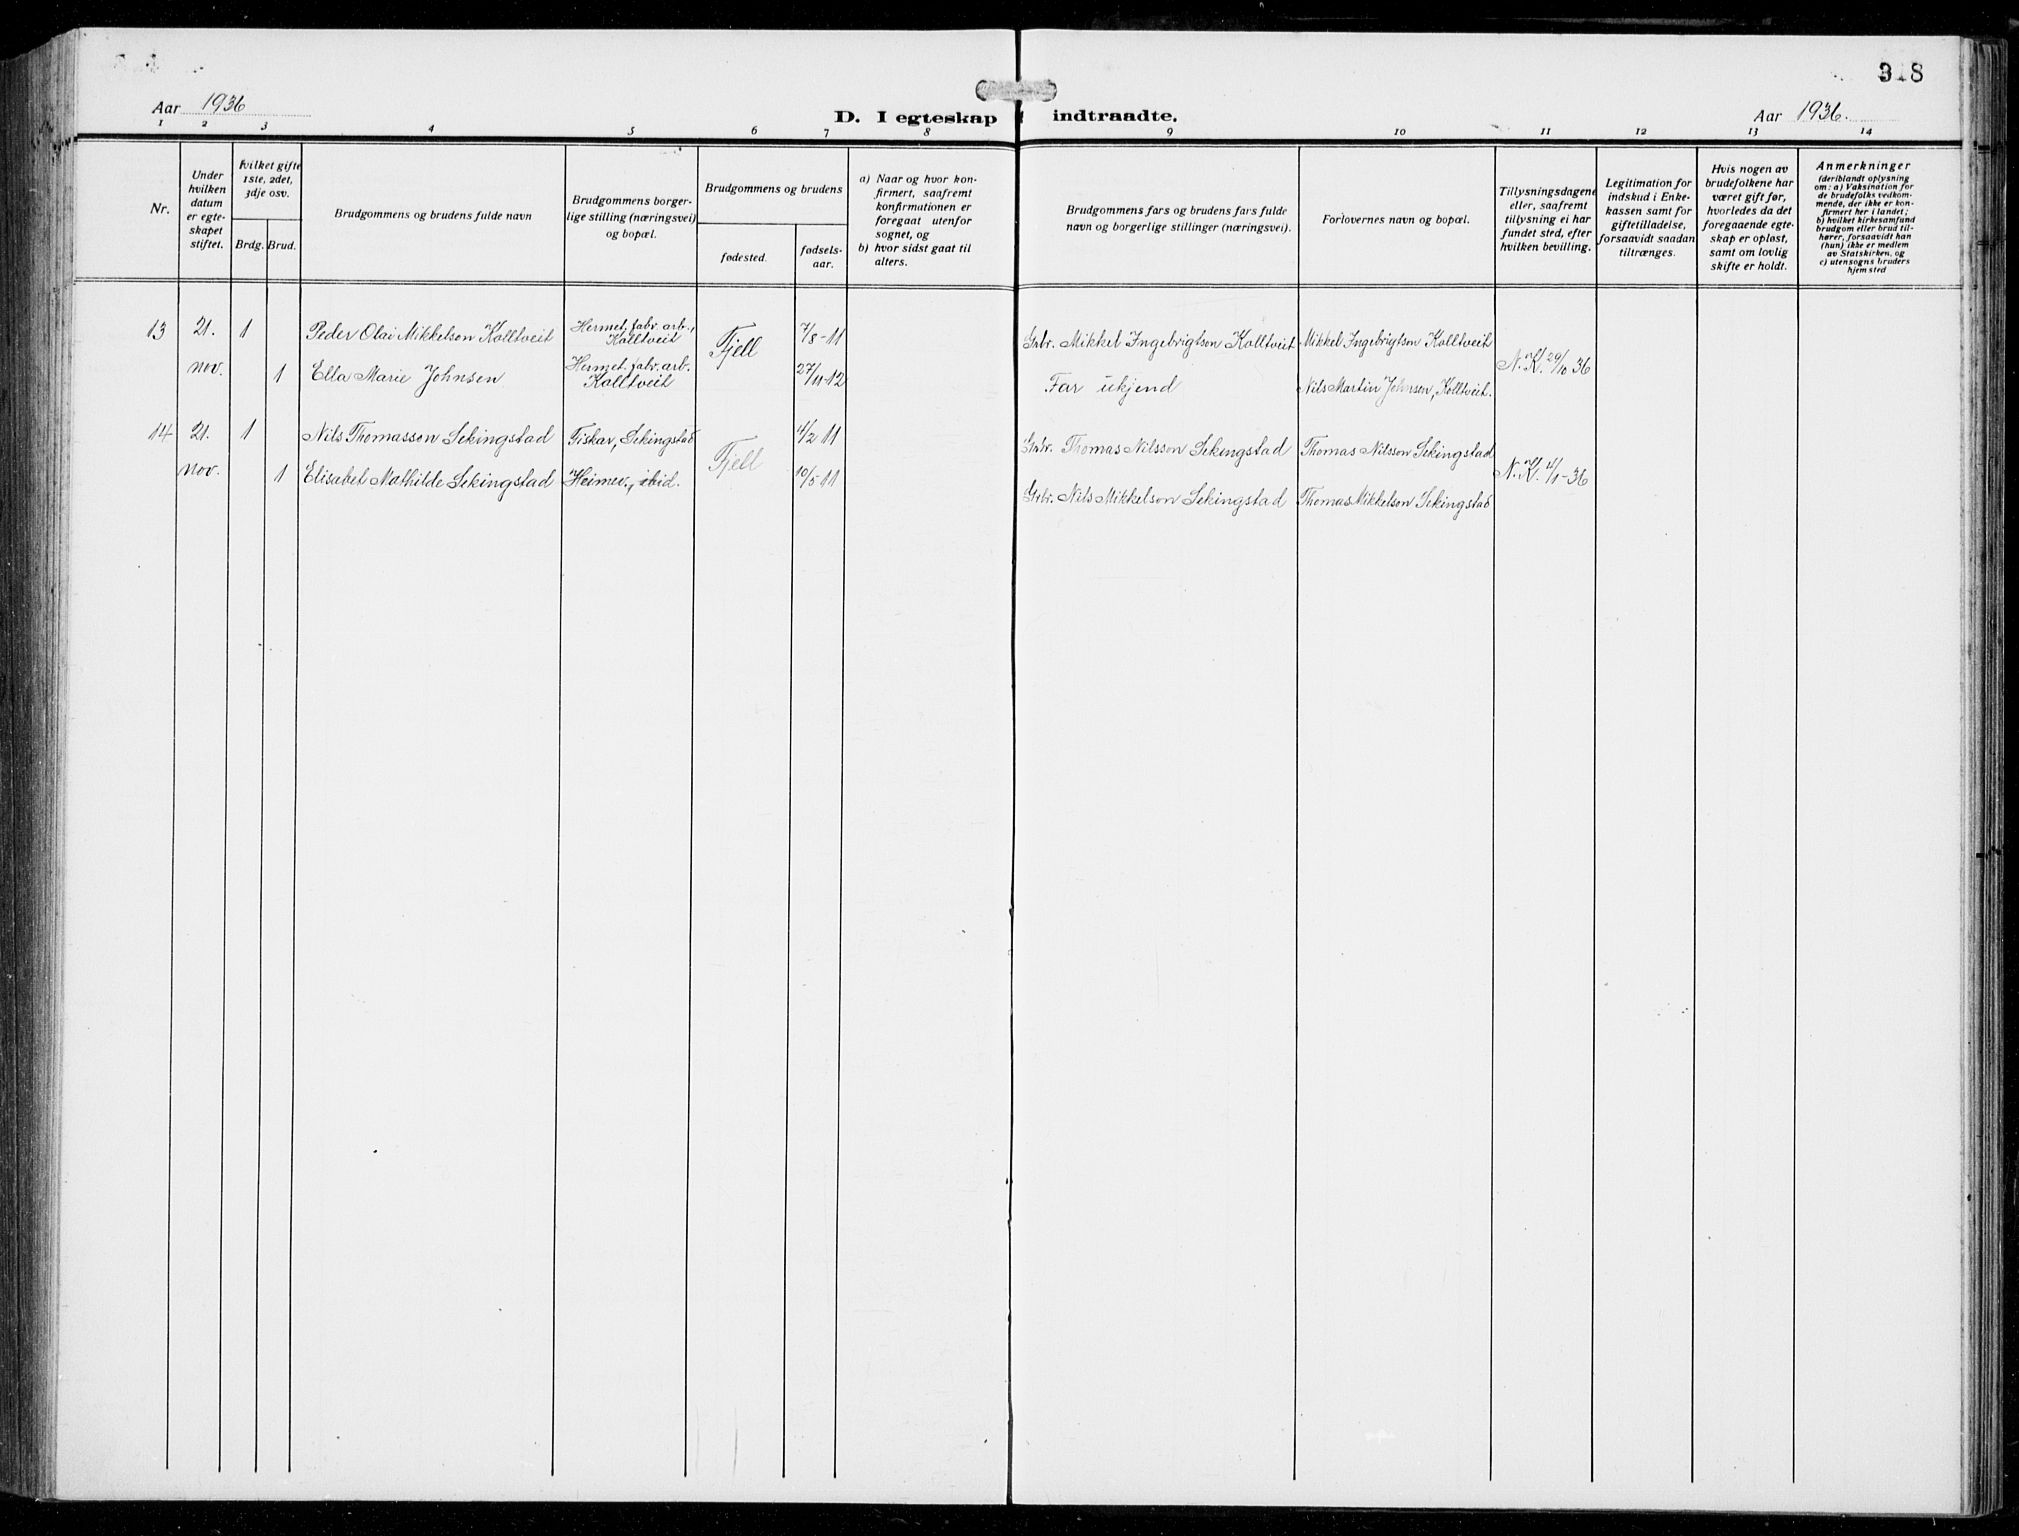 318
Aar 1936
D. I egteskap indtraadte.
Aar 1936.
1 2 3 4 5 6 7 8 9 10 11 12 13 14
Nr.
Under
hvilken
datum
er egte-
skapet
stiftet.
Hvilket gifte
1ste, 2det,
3dje osv.
Brdg. Brud.
Brudgommens og brudens fulde navn
Brudgommens borger-
lige stilling (næringsvei)
og bopæl.
Brudgommens og brudens
fødested.
fødsels-
aar.
a) Naar og hvor kon-
firmert, saafremt
konfirmationen er
foregaat utenfor
sognet, og
b) hvor sidst gaat til
alters.
Brudgommens fars og brudens fars fulde
navn og borgerlige stillinger (næringsvei).
Forlovernes navn og bopæl.
Tillysningsdagene
eller, saafremt
tillysning ei har
fundet sted, efter
hvilken bevilling.
Legitimation for
indskud i Enke-
kassen samt for
giftetilladelse,
forsaavidt saadan
tiltrænges.
Hvis nogen av
brudefolkene har
været gift før,
hvorledes da det
foregaaende egte-
skap er opløst,
samt om lovlig
skifte er holdt.
Anmerkninger
(deriblandt oplysning
om: a) Vaksination for
de brudefolks vedkom-
mende, der ikke er kon-
firmert her i landet;
b) hvilket kirkesamfund
brudgom eller brud til-
hører, forsaavidt han
(hun) ikke er medlem
av Statskirken, og
c) utensogns bruders
hjemsted
13 21. 1 Peder Olai Mikkelson Kolltveit Hermet. fabr. arb., Kolltveit 7/8-11 Gnbr. Mikkel Ingebrigtson Kolltveit Mikkel Ingebrigtson Kolltveit
Fjell N. Kl. 29/10 36
nov. 1 Ella Marie Johnsen Hermet. fabr. arb. Kolltveit 27/11-12 Far ukjend Nils Martin Johnsen, Kolltveit.
14 21. 1 Nils Thomasson Sekingstad Fiskar, Sekingstad 4/2 11 Gnbr. Thomas Nilsson Sekingstad Thomas Nilsson Sekingstad
Fjell N. Kl.
nov. 1 Elisabet Mathilde Sekingstad Heimev., ibid. 10/5-11 Gnbr. Nils Mikkelson Sekingstad Thomas Mikkelson Sekingstad